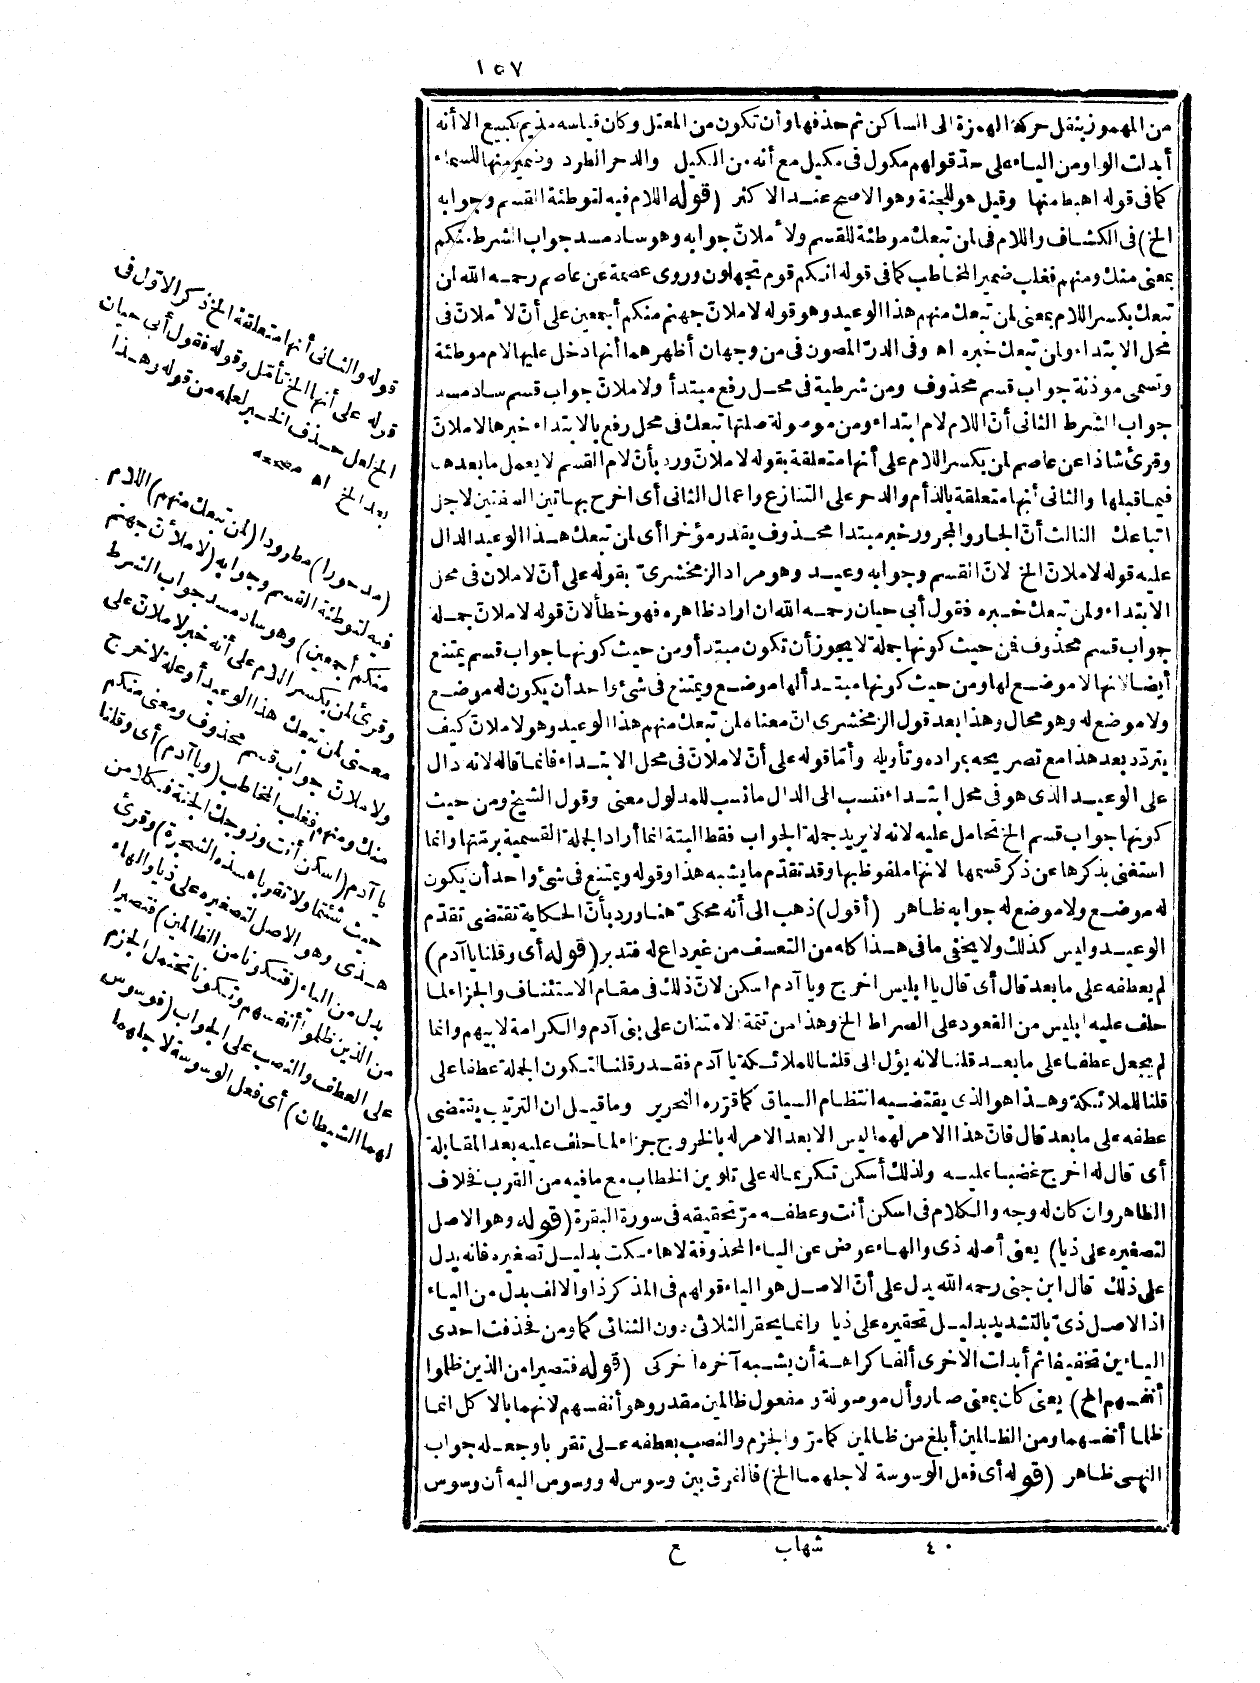 ١٥٧
من المهموز بنقل حركة الهمزة الى الساكن ثم حذفها وأن تكون من المعتل وكان قياسه مذيم كبيع الا أنه
أبدلت الواو من الياء على حد قولهم مكول فى مكيل مع أنه من الكيل والدحر الطرد وضمير منها للسماء
كما فى قوله اهبط منها وقيل هو للجنة وهو الاصح عند الاكثر (قوله اللام فيه لتوطئة القسم وجوابه
الخ) فى الكشاف واللام فى لمن تبعك موطئة للقسم ولأملأنّ جوابه وهو ساد مسد جواب الشرط منكم
بمعنى منك ومنهم فغلب ضمير المخاطب كما فى قوله انكم قوم تجهلون وروى عصمة عن عاصم رحمه الله لمن
تبعك بكسر اللام بمعنى لمن تبعك منهم هذا الوعيد وهو قوله لاملانّ جهنم منكم أجمعين على أنّ لأملانّ فى
محل الابتداء ولمن تبعك خبره اه وفى الدرّ المصون فى من وجهان أظهرهما أنها دخل عليها لام موطئة
وتسمى موذنة جواب قسم محذوف ومن شرطية فى محل رفع مبتدأ ولاملانّ جواب قسم ساد مسد
جواب الشرط الثانى أنّ اللام لام ابتداء ومن موصولة صلتها تبعك فى محل رفع بالابتداء خبرها لاملانّ
وقرئ شاذا عن عاصم لمن بكسر اللام على أنها متعلقة بقوله لاملانّ ورد بأنّ لام القسم لا يعمل ما بعدها
فيما قبلها والثانى أنها متعلقة بالذأم والدحر على التنازع واعمال الثانى أى اخرج بهاتين الصفتين لاجل
اتباعك الثالث أنّ الجار والمجرور خبر مبتدا محذوف يقدر مؤخرا أى لمن تبعك هذا الوعيد الدال
عليه قوله لاملانّ الخ لانّ القسم وجوابه وعيد وهو مراد الزمخشرىّ بقوله على أنّ لاملان فى محل
الابتداء ولمن تبعك خبره فقول أبى حيان رحمه الله ان اراد ظاهره فهو خطأ لانّ قوله لاملانّ جملة
جواب قسم محذوف فمن حيث كونها جملة لا يجوز أن تكون مبتدأ ومن حيث كونها جواب قسم يمتنع
أيضا لانها لا موضع لها ومن حيث كونها مبتدأ لها موضع ويمتنع فى شئ واحد أن يكون له موضع
ولا موضع له وهو محال وهذا بعد قول الزمخشرى انّ معناه لمن تبعك منهم هذا الوعيد وهو لاملانّ كيف
يتردّد بعد هذا مع تصريحه بمراده وتأويله وأمّا قوله على أنّ لاملانّ فى محل الابتداء فانما قاله لانه دال
على الوعيد الذى هو فى محل ابتداء فنسب الى الدال ما نسب للمدلول معنى وقول الشيخ ومن حيث
كونها جواب قسم الخ تحامل عليه لانه لا يريد جملة الجواب فقط البتة انما أراد الجملة القسمية برمتها وانما
استغنى بذكرها عن ذكر قسيمها لانها ملفوظ بها وقد تقدّم ما يشبه هذا وقوله ويمتنع فى شئ واحد أن يكون
له موضع ولا موضع له جوابه ظاهر (أقول) ذهب الى أنه محكىّ هنا ورد بأنّ الحكاية تقتضى تقدّم
الوعيد وليس كذلك ولا يخفى ما فى هذا كله من التعسف من غير داع له فتدبر (قوله أى وقلنا يا آدم)
لم يعطفه على ما بعد قال أى قال يا ابليس اخرج ويا آدم اسكن لانّ ذلك فى مقام الاستئناف والجزاء لما
حلف عليه ابليس من القعود على الصراط الخ وهذا من تتمة الامتنان على بنى آدم والكرامة لابيهم وانما
لم يجعل عطفا على ما بعد قلنا لانه يؤل الى قلنا للملائكة يا آدم فقدر قلنا لتكون الجملة عطفا على
قلنا للملائكة وهذا هو الذى يقتضيه انتظام السياق كما قرّره النحرير وما قيل ان الترتيب يقتضى
عطفه على ما بعد قال فانّ هذا الامر لهما ليس الا بعد الامر له بالخروج جزاء لما حلف عليه بعد المقابلة
أى قال له اخرج غضبا عليه ولذلك أسكن تكريما له على تلوين الخطاب مع ما فيه من القرب فخلاف
الظاهر وان كان له وجه والكلام فى اسكن أنت وعطفه مرّ تحقيقه فى سورة البقرة (قوله وهو الاصل
لتصغيره على ذيا) يعنى أصله ذى والهاء عوض عن الياء المحذوفة لا هاء سكت بدليل تصغيره فانه يدل
على ذلك قال ابن جنى رحمه الله يدل على أنّ الاصل هو الياء قولهم فى المذكر ذا والالف بدل من الياء
اذ الاصل ذىّ بالتشديد بدليل تحقيره على ذيا وانما يحقر الثلاثى دون الثنائى كما ومن فحذفت احدى
الياءين تخفيفا ثم أبدلت الاخرى ألفا كراهة أن يشبه آخره آخر كى (قوله فتصيرا من الذين ظلموا
أنفسهم الخ) يعنى كان بمعنى صار وأل موصولة ومفعول ظالمين مقدر وهو أنفسهم لانهما بالاكل انما
ظلما أنفسهما ومن الظالمين أبلغ من ظالمين كما مرّ والجزم والنصب بعطفه على تقربا وجعله جواب
النهى ظاهر (قوله أى فعل الوسوسة لاجلهما الخ) فالفرق بين وسوس له ووسوس اليه أن وسوس
قوله والثانى أنها متعلقة الخ ذكر الاوّل فى
قوله على أنها الخ تأمّل وقوله فقول أبى حيان
الخ لعل حذف الخبر لعلمه من قوله وهذا
بعد الخ اه مصححه
(مدحورا) مطرودا (لمن تبعك منهم) اللام
فيه لتوطئة القسم وجوابه (لاملأنّ جهنم
منكم أجمعين) وهو ساد مسد جواب الشرط
وقرئ لمن بكسر اللام على أنه خبر لاملانّ على
معنى لمن تبعك هذا الوعيد أو علة لاخرج
ولاملانّ جواب قسم محذوف ومعنى منكم
منك ومنهم فغلب المخاطب (ويا آدم) أى وقلنا
يا آدم (اسكن أنت وزوجك الجنة فكلا من
حيث شئتما ولا تقربا هذه الشجرة) وقرئ
هذى وهو الاصل لتصغيره على ذيا والهاء
بدل من الياء (فتكونا من الظالمين) فتصيرا
من الذين ظلموا أنفسهم وتكونا تحتمل الجزم
على العطف والنصب على الجواب (فوسوس
لهما الشيطان) أى فعل الوسوسة لاجلهما
٤٠ شهاب ع